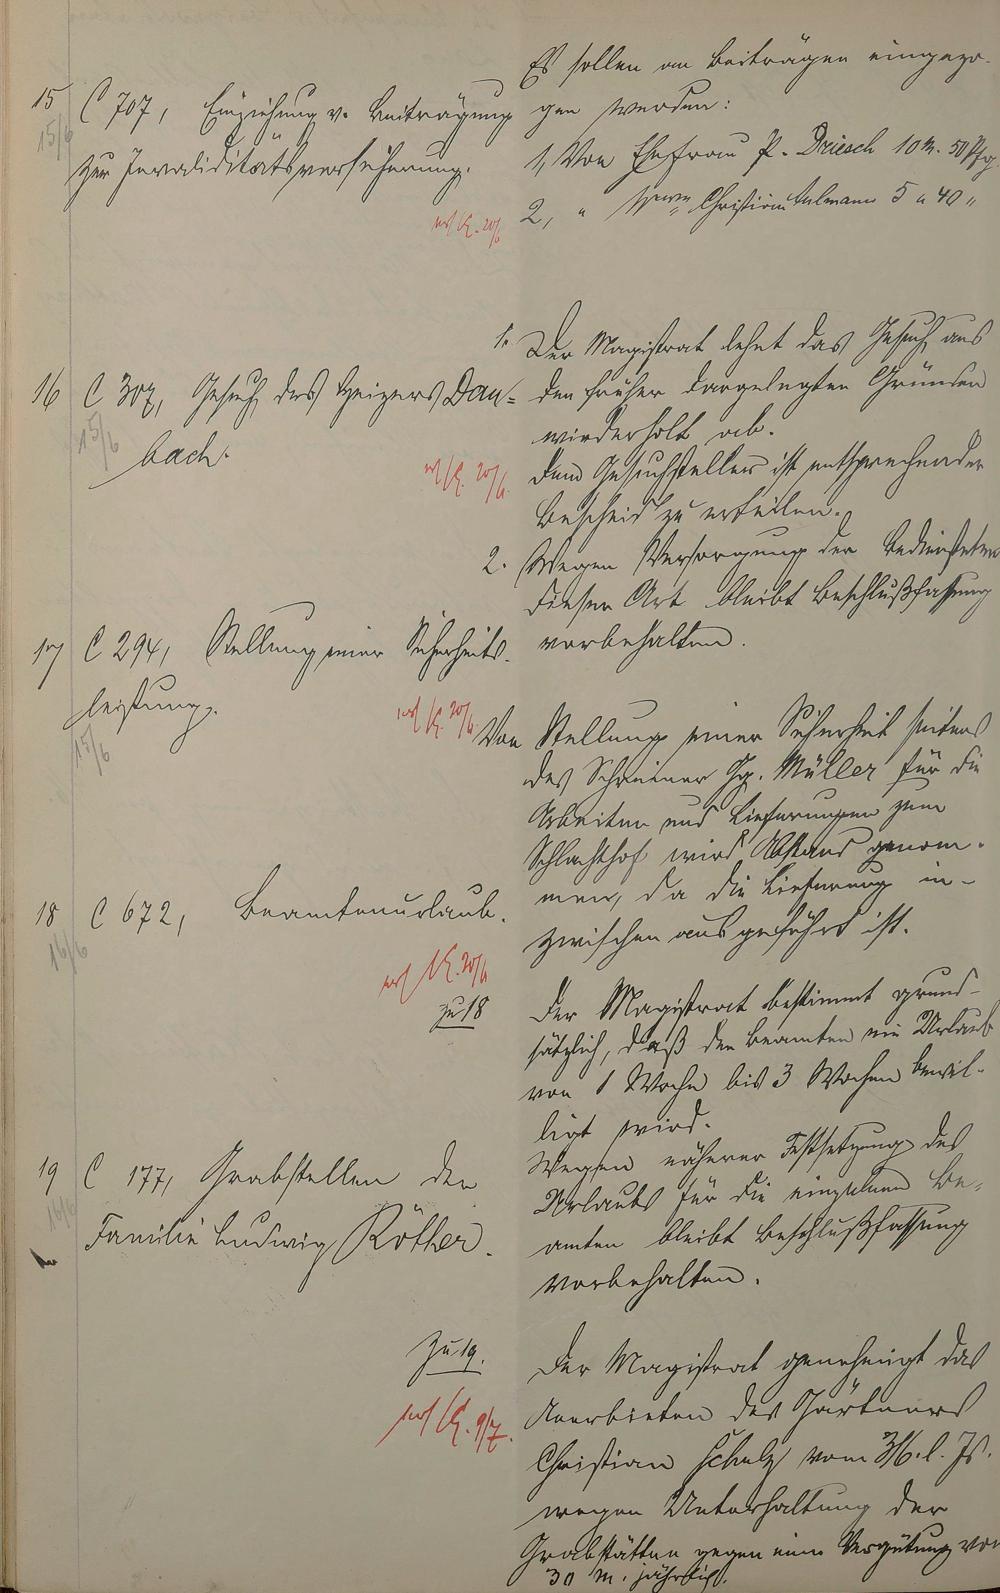 15 C 707, Einziehung v. Beiträgung
15/6
zur Invaliditätsversicherung.
Es sollen an Beiträgen eingezo-
gen werden:
1, Von Ehefrau P. Driesch 10 M. 50 Pfg
2, " Christian 5 " 40 "
20/6
16 C 307, Gesuch des Heizers Dau=
15/6
bach.
20/6
1. Der Magistrat lehnt das Gesuch aus
den früher dargelegten Gründen
wiederholt ab.
Dem Gesuchsteller ist entsprechender
Bescheid zu erteilen.
2. Wegen Versorgung der Bediensteten
dieser Art bleibt Beschlußfassung
vorbehalten.
17 C 294, Stellung einer Sicherheits-
leistung.
15/6
20/6
Von Stellung einer Sicherheit seitens
des Schreiner Hg. Müller für die
Arbeiten und Lieferungen zum
Schlachthof wird Abstand genom-
men, da die Lieferung in-
zwischen ausgeführt ist.
18 C 672, Beamtenurlaub.
16/6
20/6
zu 18
Der Magistrat bestimmt grund-
sätzlich, daß den Beamten ein Urlaub
von 1 Woche bis 3 Wochen bewil-
ligt wird.
Wegen näherer Festsetzung des
Urlaubs für die einzelnen Be-
amten bleibt Beschlußfassung
vorbehalten.
19 C 177, Grabstellen der
16/6
Familie Ludwig Röther.
zu 19.
9/7.
Der Magistrat genehmigt das
Anerbieten des Gärtners
Christian Schulz vom 3/6. l. Js.
wegen Unterhaltung der
Grabstätten gegen eine Vergütung von
30 M. jährlich.